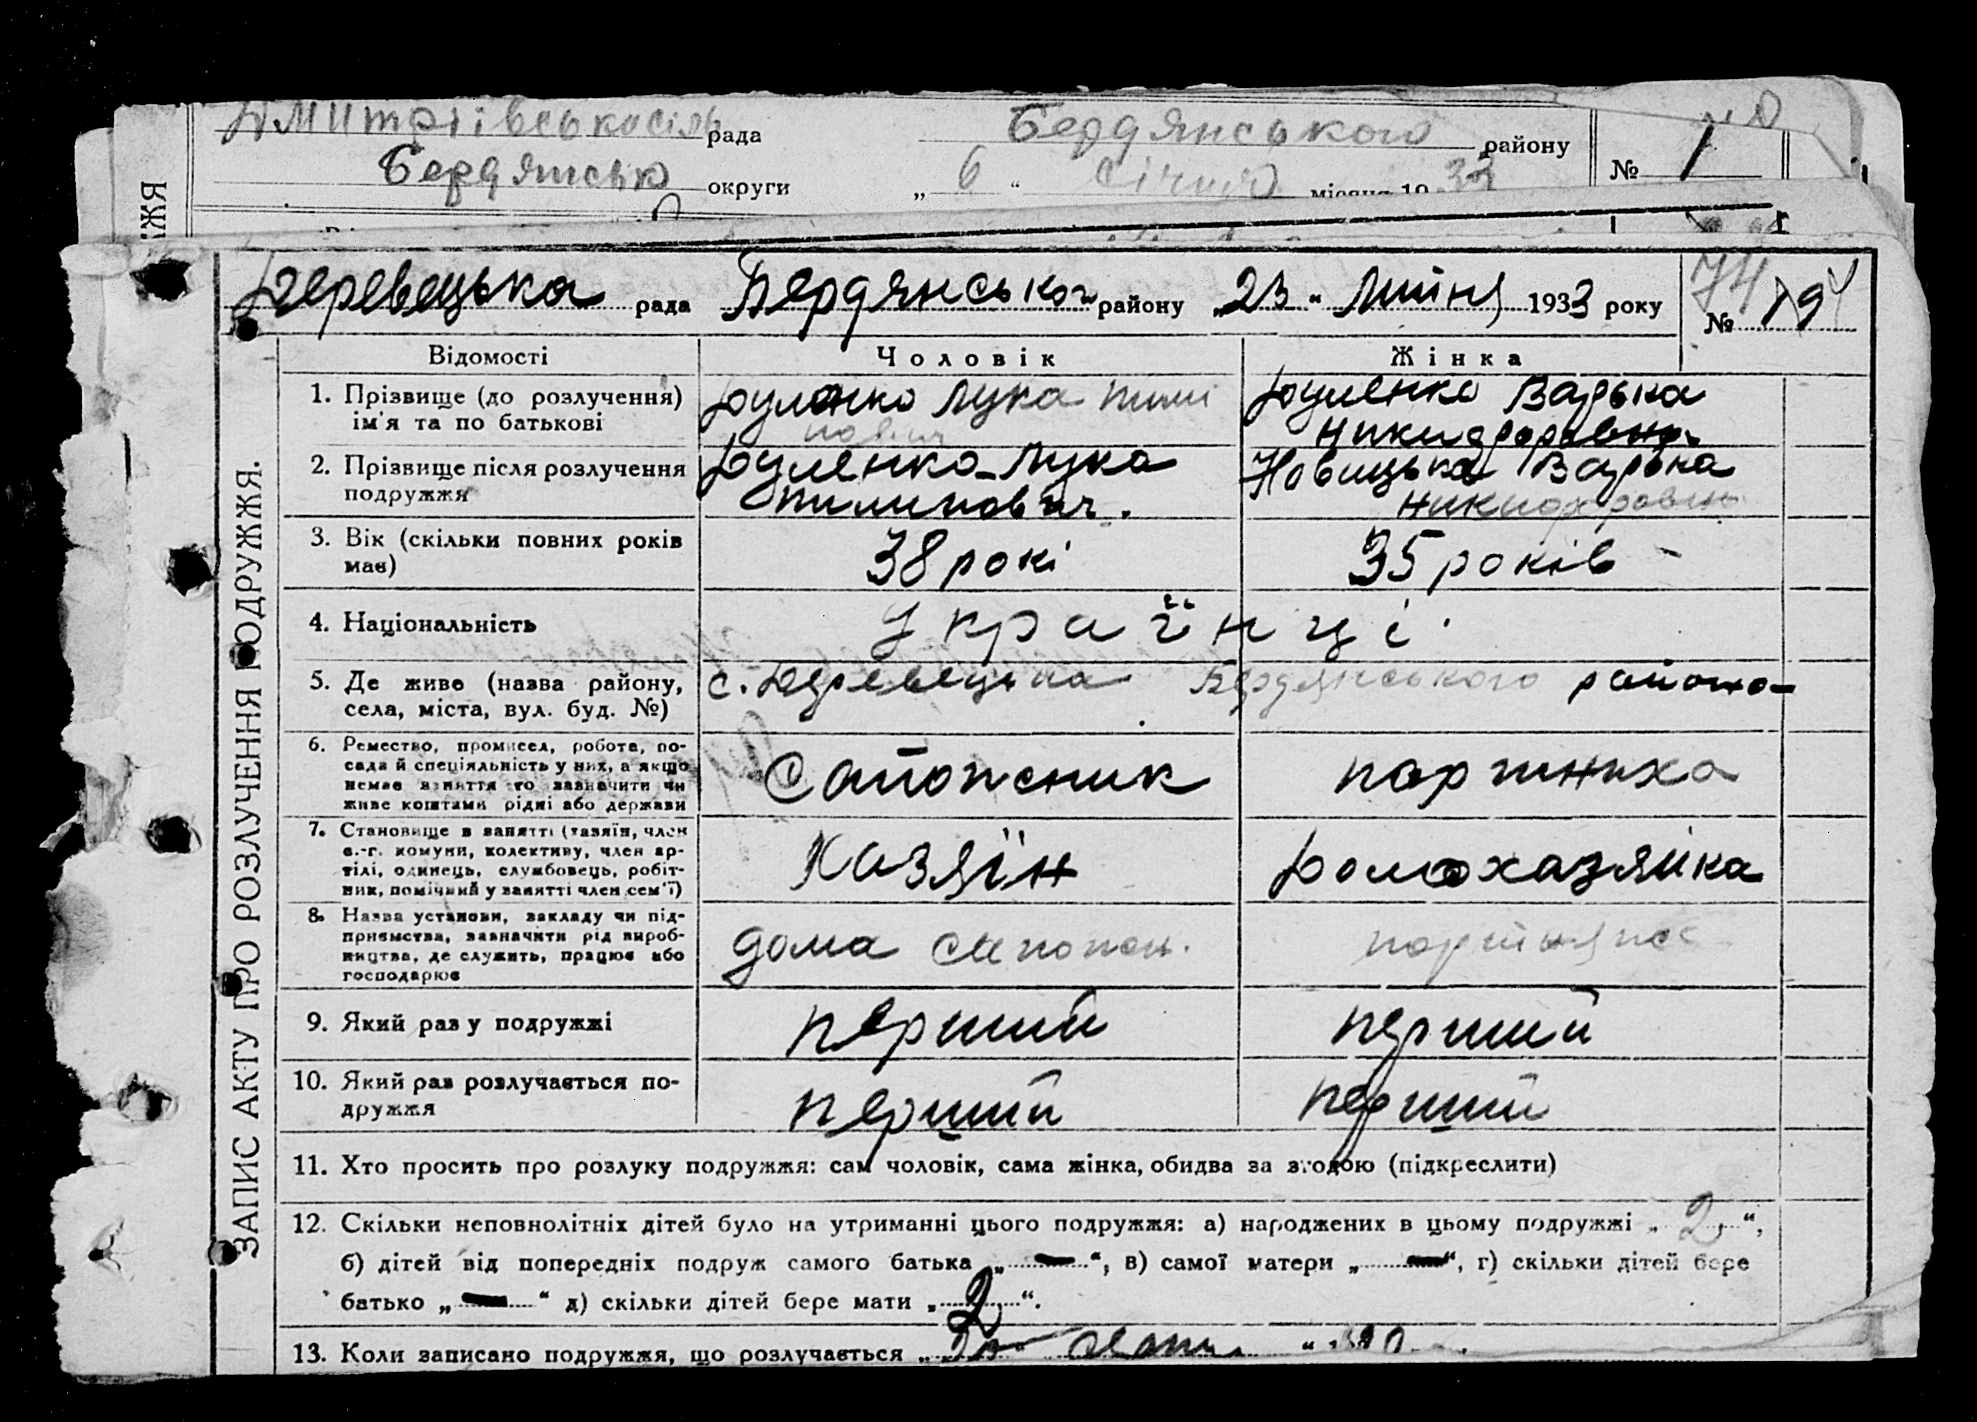 Дмитрівська сіль рада Бердянського району № 1
Бердянсько округи „ 6 “ Січня місяця 19 33
ЖЖЯ
Деревецька рада Бердянськог району „23“ Липня 1933 року 74 № 194
ЗАПИС АКТУ ПРО РОЗЛУЧЕННЯ ПОДРУЖЖЯ.
Відомості Чоловік Жінка
1. Прізвище (до розлучення) Дуленко Лука Пили Дуленко Варька
ім'я та по батькові пович Никифоровна
2. Прізвище після розлучення Дуленко Лука Новицька Варька
подружжя Пилипович. Никифоровна
3. Вік (скільки повних років 38 рокі 35 років
має)
4. Національність Українці.
5. Де живе (назва району, с. Деревецька Бердянського району
села, міста, вул. буд. №)
6. Ремество, промисел, робота, по-
сада й спеціяльність у них, а якщо Сапожник портниха
немає заняття то зазначити чи
живе коштами рідні або держави
7. Становище в занятті (хазяїн, член
с.-г. комуни, колективу, член ар- Хазяїн Домохазяйка
тілі, одинець, службовець, робіт-
ник, помічний у занятті член сем'ї)
8. Назва установи, закладу чи під-
приємства, зазначити рід вироб- дома сапожн.
ництва, де служить, працює або
господарює
9. Який раз у подружжі перший перший
10. Який раз розлучається по- перший перший
дружжя
11. Хто просить про розлуку подружжя: сам чоловік, сама жінка, обидва за згодою (підкреслити)
12. Скільки неповнолітніх дітей було на утриманні цього подружжя: а) народжених в цьому подружжі „ 2 “,
б) дітей від попередніх подруж самого батька „ — “, в) самої матери „ — “, г) скільки дітей бере
батько „ — “ д) скільки дітей бере мати „ 2 “.
13. Коли записано подружжя, що розлучається